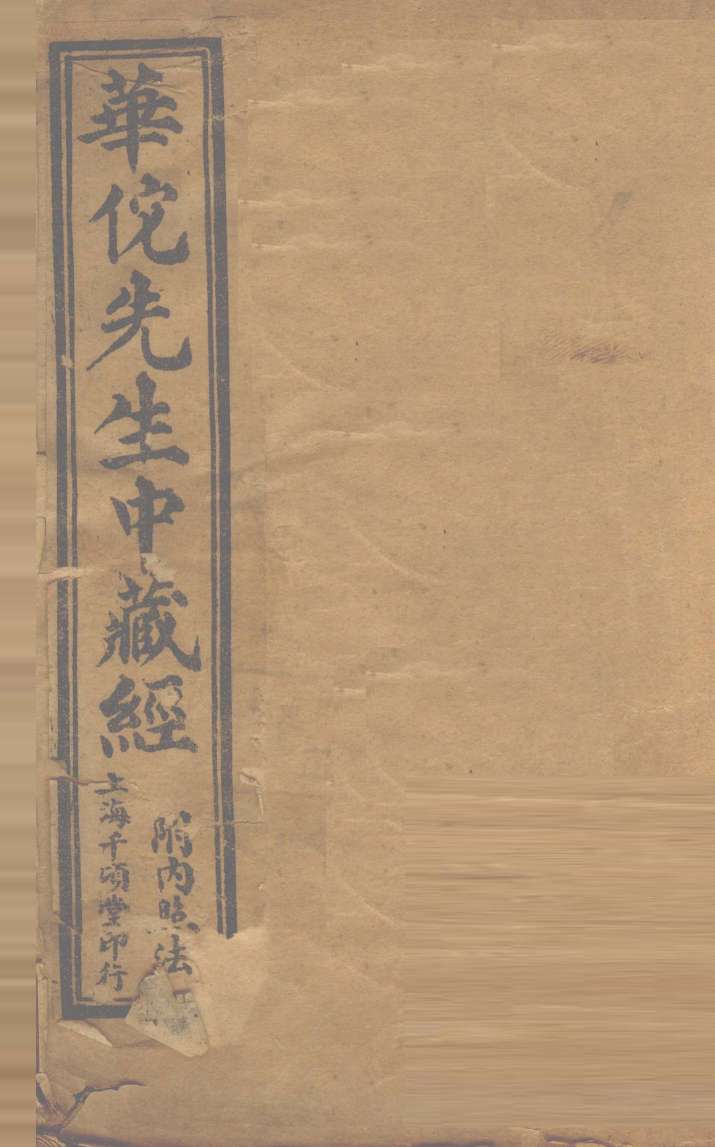 華佗先生中藏經
附內照法
上海千頃堂印行